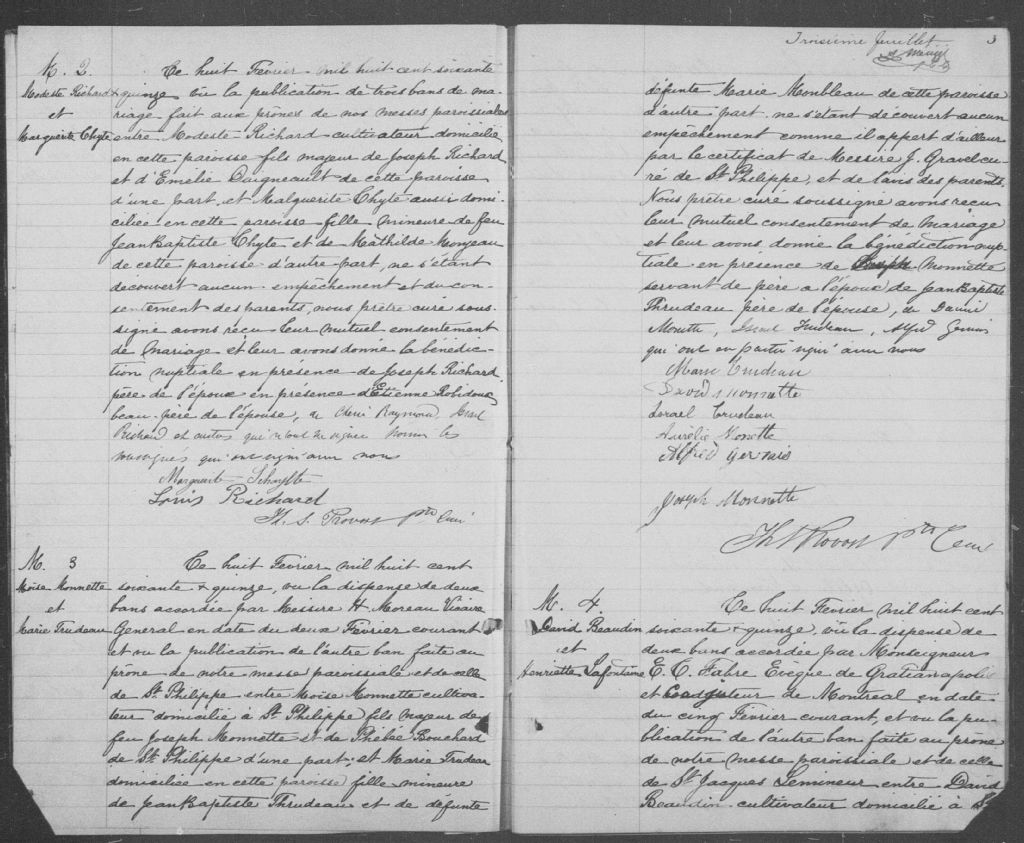 M. 2.
Modeste Richard
et
Marguerite Chyte
Ce huit Fevrier mil huit cent soixante
+ quinze vû la publication de trois bans de ma-
riage fait aux prônes de nos messes paroissiales
entre Modeste Richard cultivateur domicilié
en cette paroisse fils majeur de Joseph Richard
et d'Emélie Daigneault de cette paroisse
d'une part, et Malguerite Chyte aussi domi-
ciliée en cette paroisse fille mineure de feu
Jean Baptiste Chyte et de Mathilde Monjeau
de cette paroisse d'autre part, ne s'étant
découvert aucun empêchement et du con-
sentement des parents, nous prêtre curé sous-
signé avons reçu leur mutuel consentement
de mariage et leur avons donné la bénédic-
tion nuptiale en présence de Joseph Richard
père de l'époux en présence d'Etienne Robidoux
beau-père de l'épouse, de Chéri Raymond, Israel
Richard et autres qui n'ont su signer hormis les
soussignés qui ont signé avec nous
Marguerite Schoylte
Louis Richard
Th. S. Provost Ptre Curé
M. 3
Moïse Monnette
et
Marie Trudeau
Ce huit Fevrier mil huit cent
soixante + quinze, vu la dispense de deux
bans accordée par Messire H. Moreau Vicaire
General en date du deux Février courant
et vu la publication de l'autre ban faite au
prône de notre messe paroissiale et de celle
de St. Philippe entre Moïse Monnette cultiva-
teur domicilié à St. Philippe fils majeur de
feu Joseph Monnette et de Phebee Bouchard
de St. Philippe d'une part, et Marie Trudeau
domiciliée en cette paroisse fille mineure
de Jean Baptiste Thrudeau et de défunte
Troisième feuillet
3
défunte Marie Moubleau de cette paroisse
d'autre part ne s'étant découvert aucun
empêchement comme il appert d'ailleur
par le certificat de Messire J. Gravel cu-
ré de St Philippe, et de l'avis des parents,
Nous prêtre curé soussigné avons reçu
leur mutuel consentement de mariage
et leur avons donné la bénédiction nup-
tiale en présence de Joseph Monnette
servant de père a l'époux de Jean Baptiste
Thrudeau père de l'épouse, de David
Monette, Israel Trudeau, Alfred Gervais
qui ont en partie signé avec nous
Marie Trudeau
David Monnette
Israel Trudeau
Aurélie Monette
Alfred Gervais
Joseph Monnette
Th S Provost Ptre Curé
M. 4.
David Beaudin
et
Henriette Lafontaine
Ce huit Fevrier mil huit cent
soixante + quinze, vû la dispense de
deux bans accordée par Monseigneur
E. C. Fabre Evêque de Gratianapolis
et Coadjuteur de Montreal en date
du cinq Février courant, et vu la pu-
blication de l'autre ban faite au prône
de notre messe paroissiale et de celle
de St Jacques Lemineur entre David
Beaudin cultivateur domicilié à St